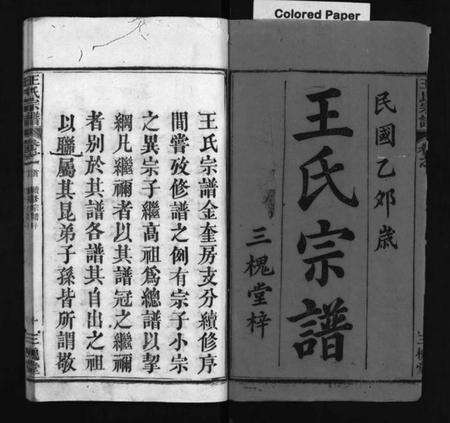 Colored Paper
民國乙卯歲
王氏宗譜
三槐堂梓
王氏宗譜
王氏宗譜金奎房支分續修序
間嘗攷修譜之例有宗子小宗
之異宗子繼高祖為總譜以挈
綱凡繼禰者以其譜冠之繼禰
者別於其譜各譜其自出之祖
以聯屬其昆弟子孫皆所謂敬
王氏宗譜
三槐堂